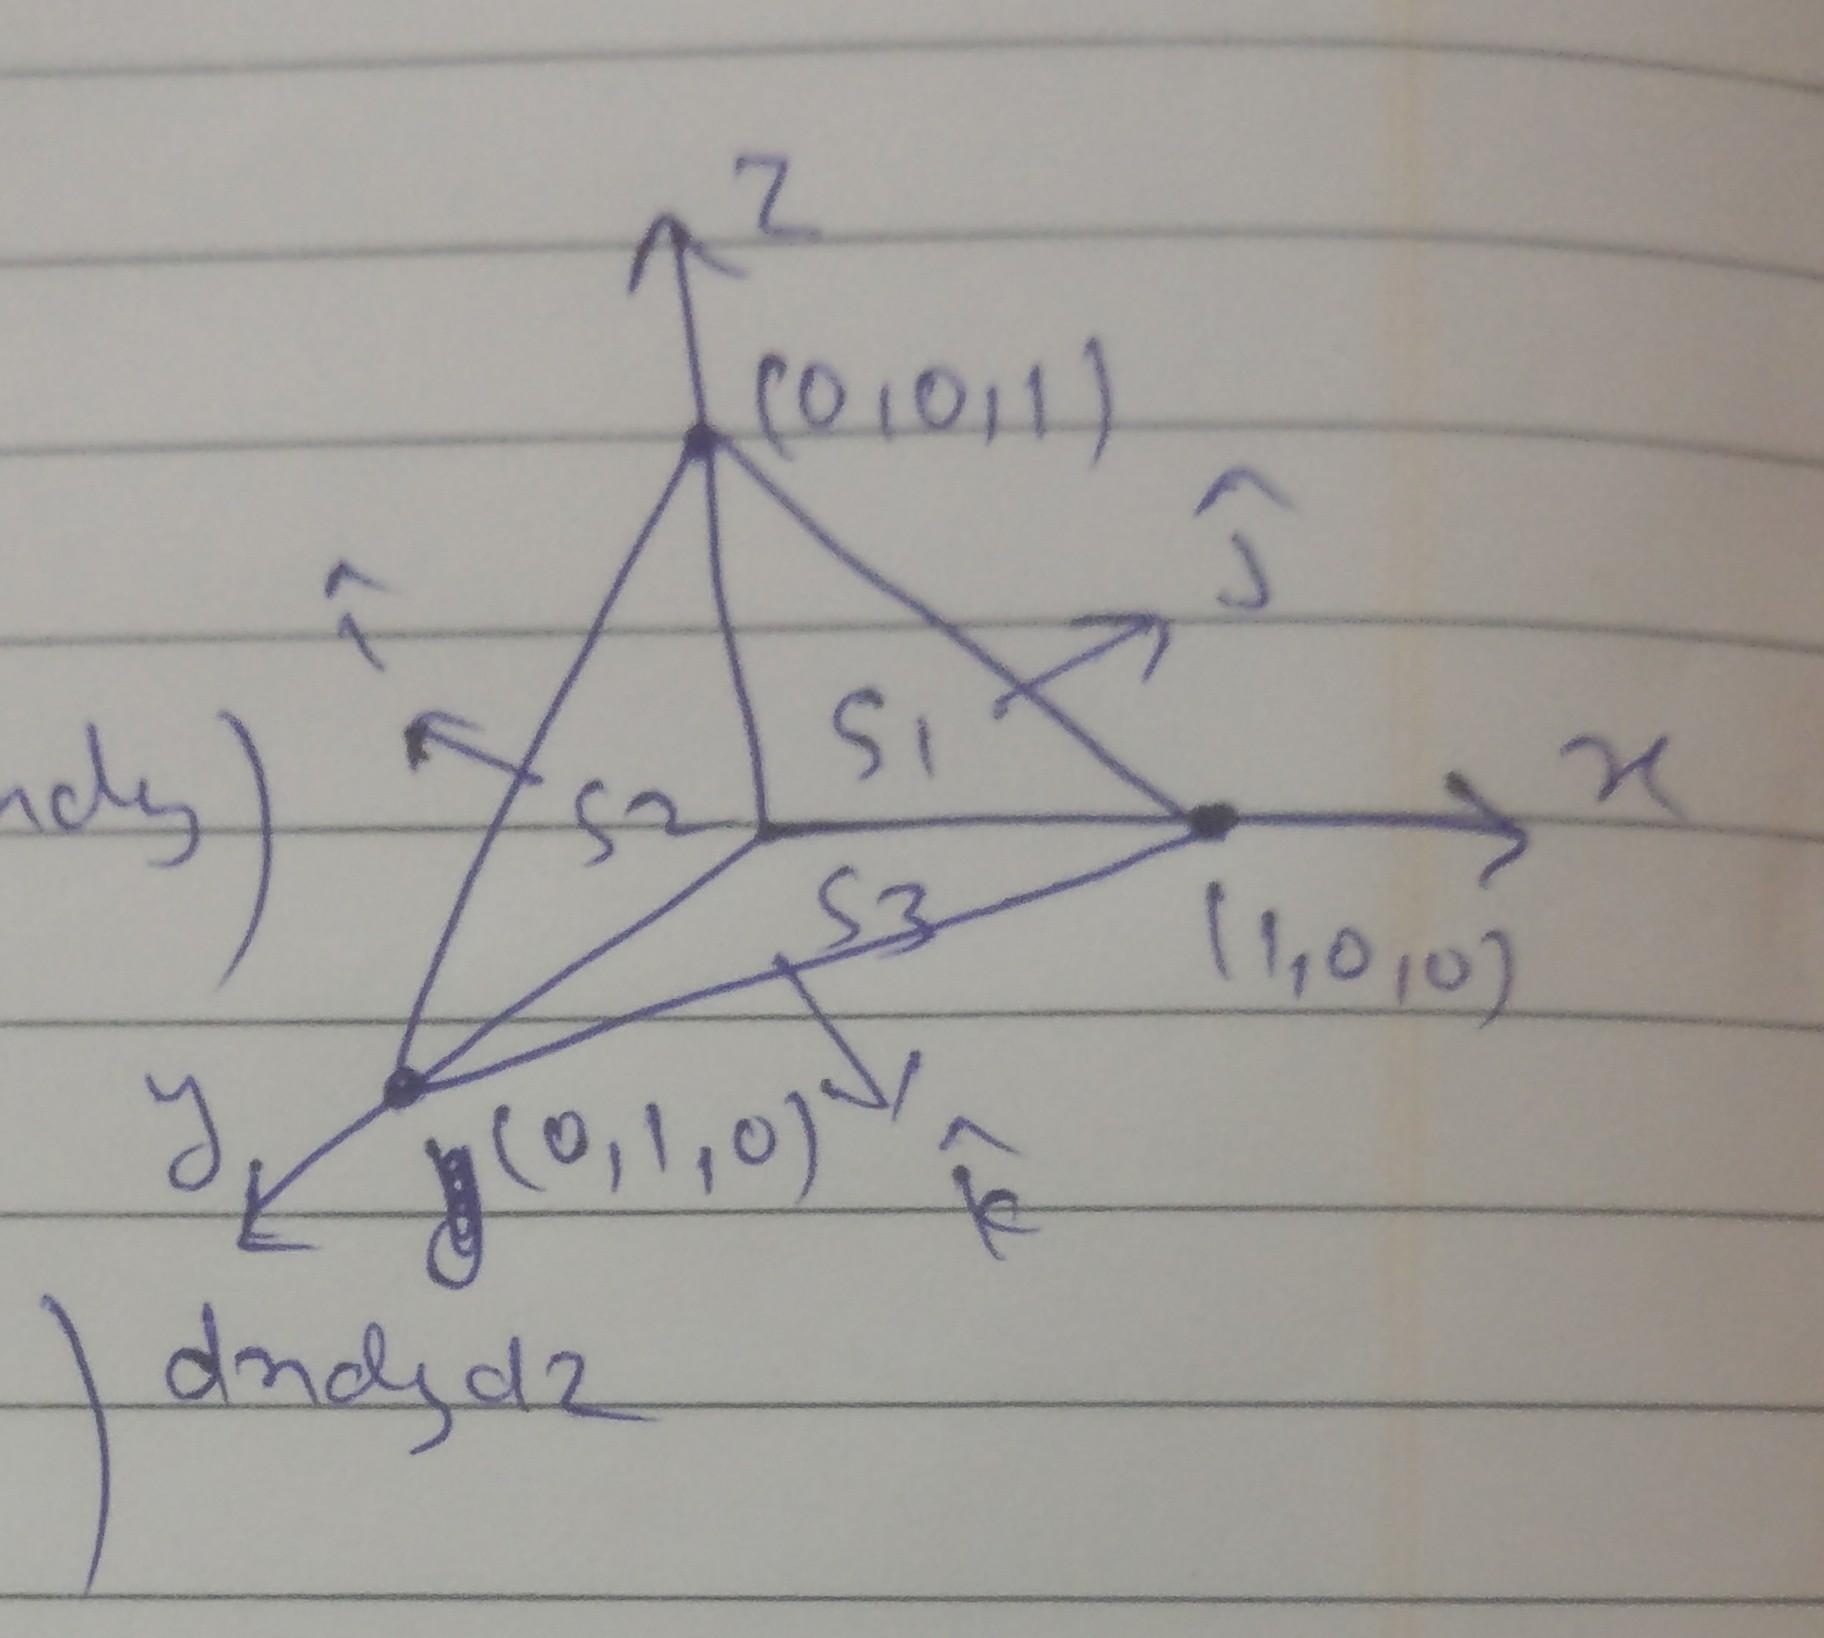 z
(0,0,1)
ĵ
î
S1
x
S2
S3
(1,0,0)
y
(0,1,0)
k̂
)
) dxdydz